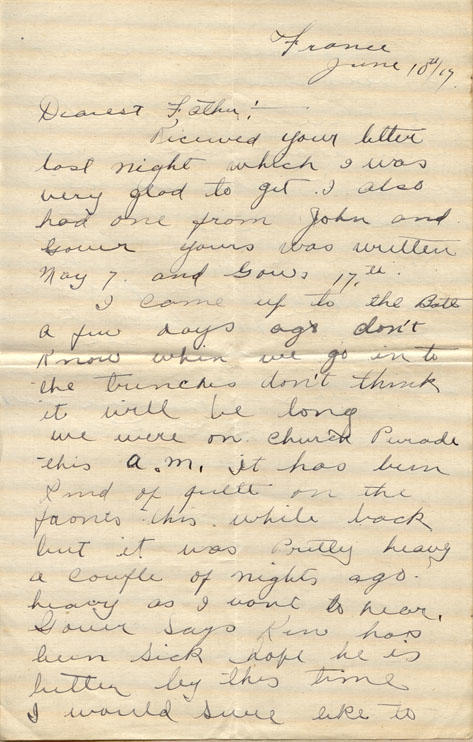 France
June 10th/17.
Dearest Father:
Received your letter
last night which I was
very glad to get. I also
had one from John and
Gower yours was written
May 7. and Gowers 17th.
I came up to the Batt
a few days ago don't
know when we go in to
the trenches don't think
it will be long
we were on Church Parade
this A.M. it has been
kind of quiet on the
this while back
but it was Pretty heavy
a couple of nights ago.
heavy as I want to hear.
Gower says Ken has
been sick hope he is
better by this time
I would sure like to